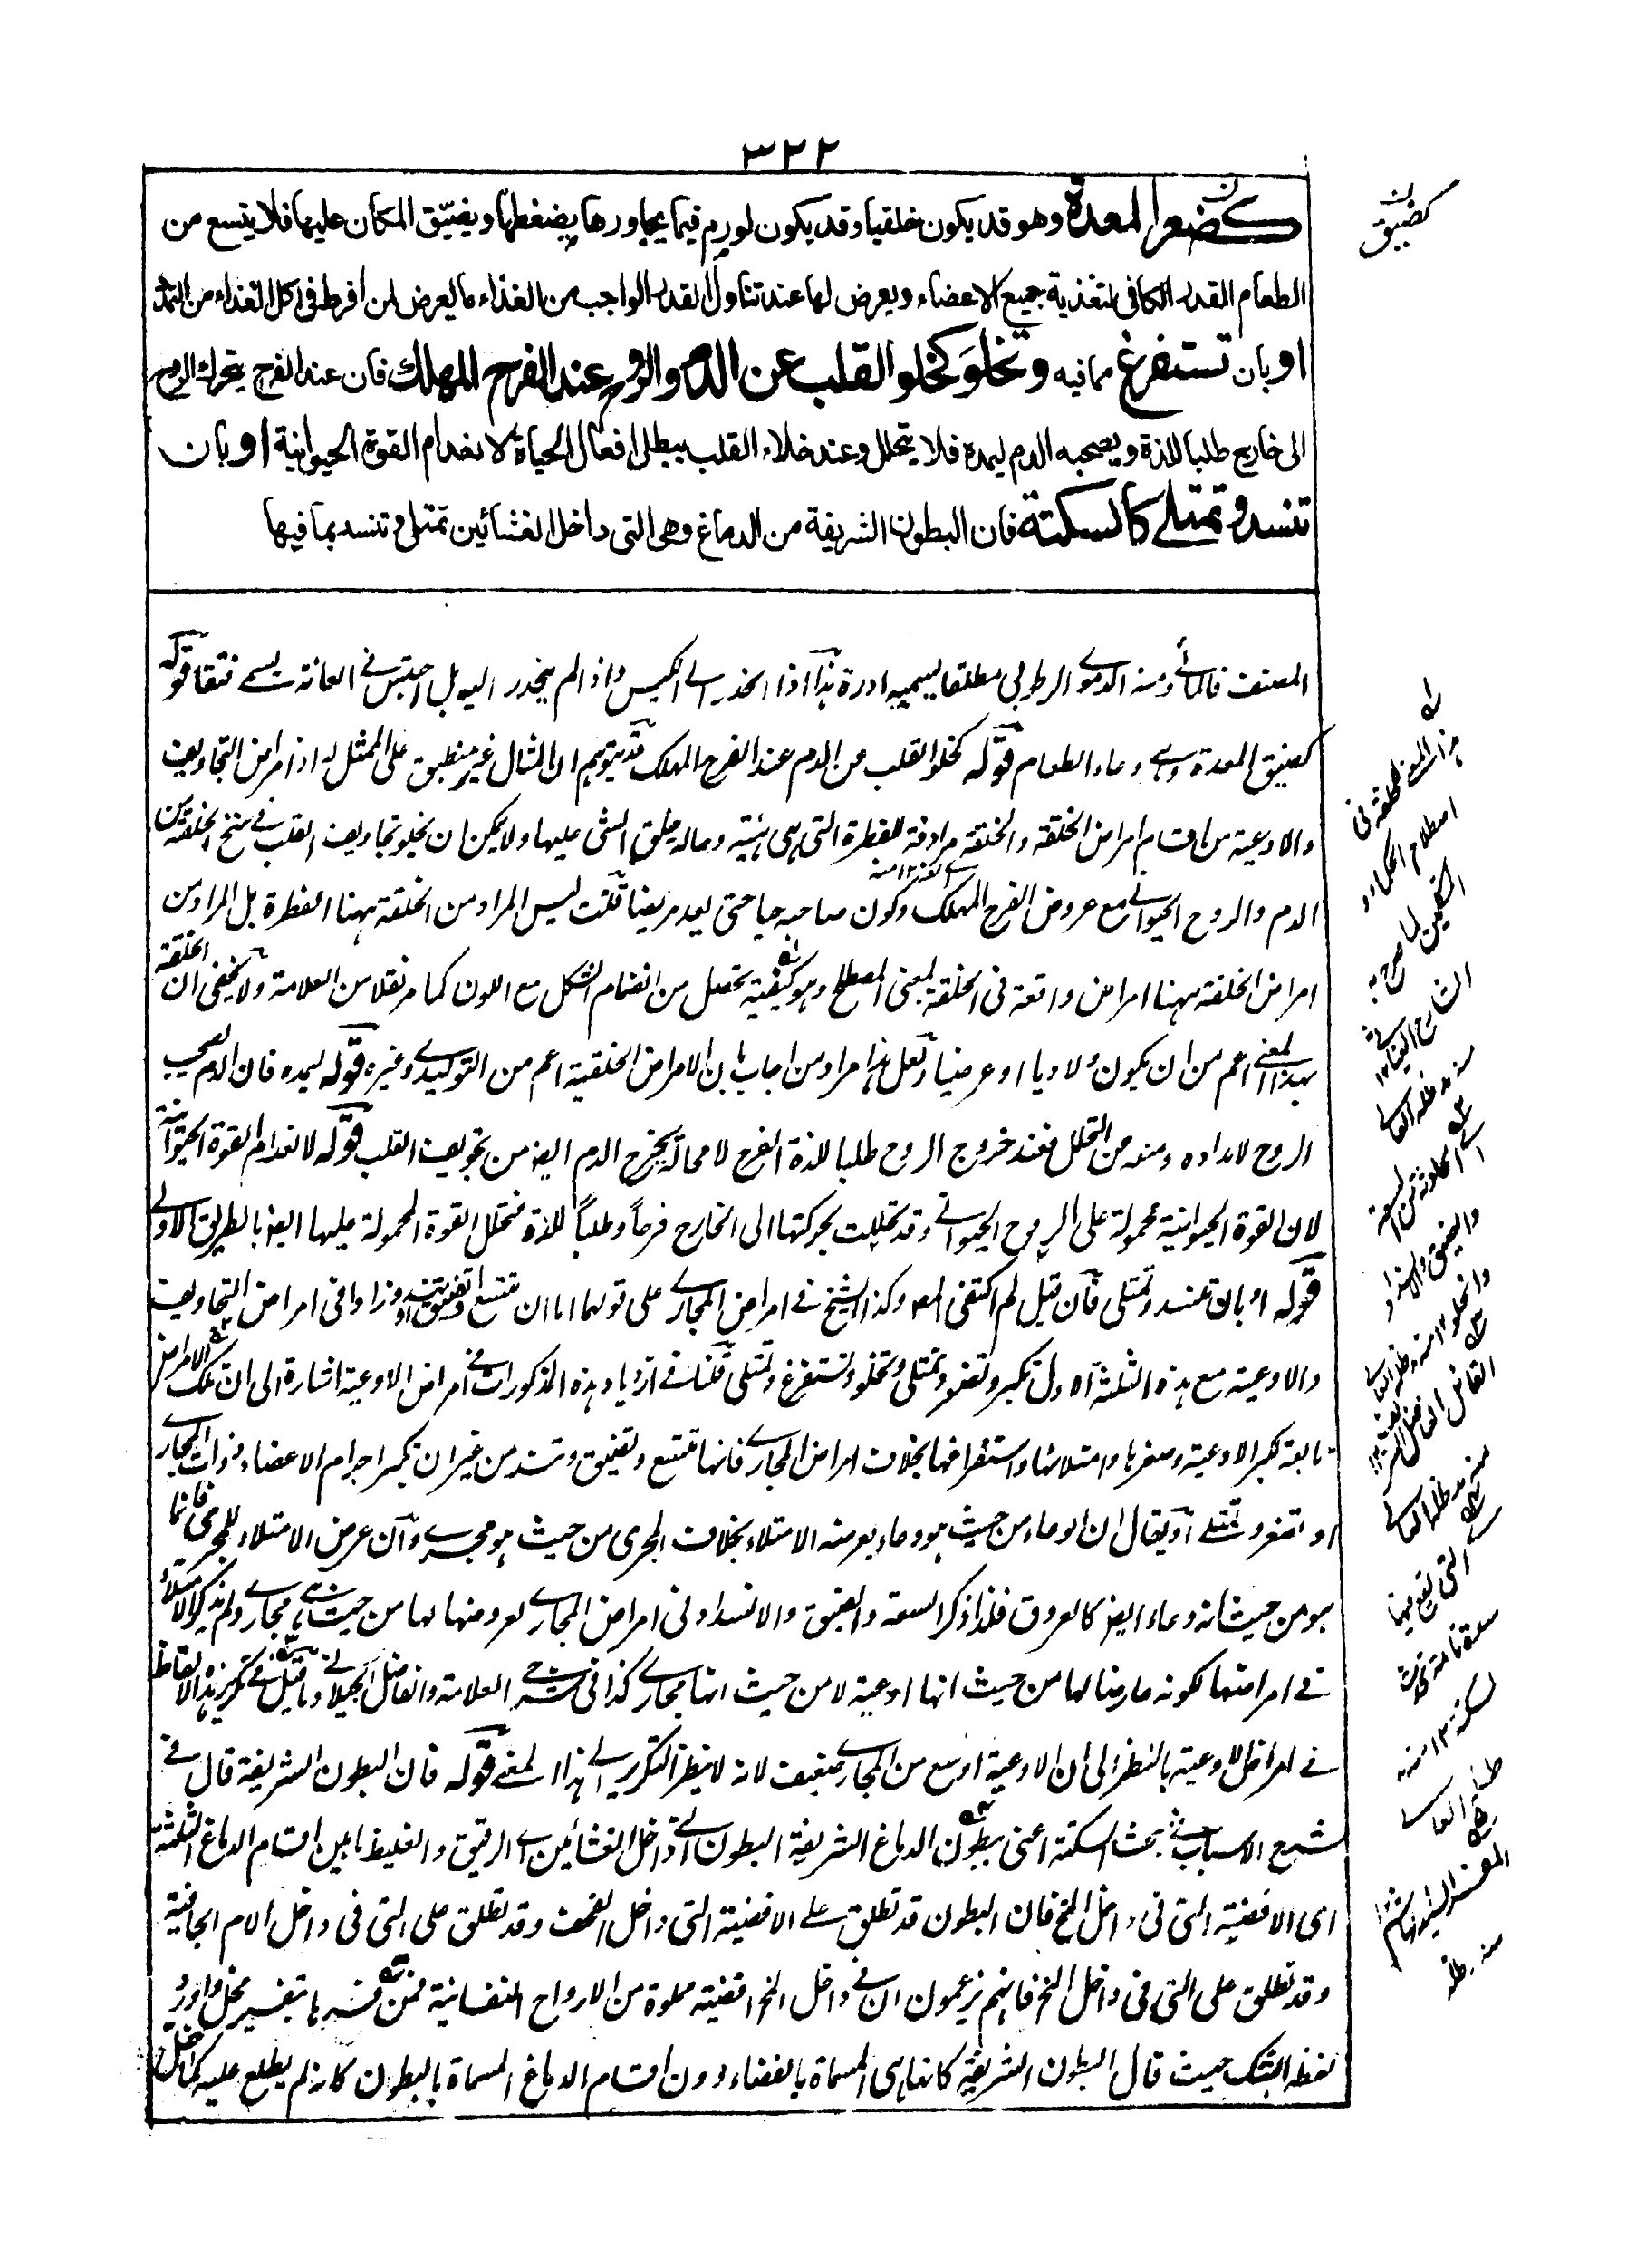 ٣٢٢
كصغر المعدة وهو قد يكون خلقيا وقد يكون لورم فيما يجاورها يضغطها ويضيّق المكان عليها فلا يتسع من
الطعام القدر الكافى لتغذية جميع الاعضاء ويعرض لها عند تناول القدر الواجب من الغذاء ما يعرض لمن افرط فى اكل الغذاء من التمدد
او بان تستفرغ ممافيه وتخلو كخلو القلب عن الدم والروح عند الفرح المهلك فان عند الفرح يتحرك الروح
الى خارج طلبا للذة ويصحبه الدم ليمده فلا يتحلل وعند خلاء القلب يبطل افعال الحياة لانعدام القوة الحيوانية او بان
تنسد وتمتلى كالسكتة فان البطون الشريفة من الدماغ وهى التى داخل الغشائين تمتلى وتنسد بما فيها
كضيق
المصنف قالماء ومنه الدموى الرطوبى مطلقا يسميه ادرة هذا اذا انحدر الى الكيس واذا لم ينحدر البول احتبس فى العانة يسمى فتقا قوله
كضيق المعدة وهى وعاء الطعام قوله كخلو القلب من الدم عند الفرح المهلك قد يتوهم ان المثال غير منطبق على الممثل له اذ امراض التجاويف
والاوعية من اقسام امراض الخلقة والخلقة مرادفة للفطرة التى هى هيئة وحالة خلق الشئ عليها ولا يمكن ان يخلو تجاويف القلب فى بدء الخلقة من
الدم والروح الحيوانى مع عروض الفرح المهلك وكون صاحبه حيا حتى يعد مريضا قلت ليس المراد من الخلقة ههنا الفطرة بل المراد من
امراض الخلقة ههنا امراض واقعة فى الخلقة بمعنى المصطلح وهو كيفية تحصل من انضمام الشكل مع اللون كما مر نقلا من العلامة ولا يخفى ان الخلقة
بهذا المعنى اعم من ان يكون ولاديا او عرضيا ولعل هذا مراد من اجاب بان الامراض الخلقية اعم من التوليدى وغيره قوله ليمده فان الدم يصحب
الروح لامداده ومنعه من التحلل فعند خروج الروح طلبا للذة الفرح لا محالة يخرج الدم ايضا من تجويف القلب قوله لانعدام القوة الحيوانية
لان القوة الحيوانية محمولة على الروح الحيوانى وقد تحللت بحركتها الى الخارج فرحاً وطلباً للذة فتحلل القوة المحمولة عليها ايضا بالطريق الاولى
قوله او بان تنسد وتمتلى فان قيل لم اكتفى المص وكذا الشيخ فى امراض المجارى على قولهما اما ان تتسع او تضيق او تنسد وزادا فى امراض التجاويف
والاوعية مع هذه الثلثة الاول تكبر وتصغر وتمتلى وتخلو وتستفرغ وتمتلى قلنا فى ازدياد هذه المذكورات فى امراض الاوعية اشارة الى ان تلك الامراض
تابعة لكبر الاوعية وصغرها وامتلائها واستفراغها بخلاف امراض المجارى فانها تتسع وتضيق وتنسد من غير ان تكبر اجرام الاعضاء ذوات المجارى
او تصغر وتمتلى او يقال ان الوعاء من حيث هو وعاء يعرضه الامتلاء بخلاف المجرى من حيث هو مجرى وان عرض الامتلاء للمجرى فانما
هو من حيث انه وعاء ايضا كالعروق فلذا ذكر السعة والضيق والانسداد فى امراض المجارى لعروضها لها من حيث هى مجارى ولم يذكر الامتلاء
فى امراضها لكونه عارضا لها من حيث انها اوعية لا من حيث انها مجارى كذا فى شرح العلامة والفاضل الجيلانى وما قيل فى تكرير هذه الالفاظ
فى امراض الاوعية بالنظر الى ان الاوعية اوسع من المجارى ضعيف لانه لا ينظر التكرير الى هذا المعنى قوله فان البطون الشريفة قال فى
شرح الاسباب فى بحث السكتة اعنى ببطون الدماغ الشريفة البطون التى داخل الغشائين اى الرقيق والغليظ ما بين اقسام الدماغ الثلثة
اى الافضية التى فى داخل المخ فان البطون قد تطلق على الافضية التى داخل القحف وقد تطلق على التى فى داخل الام الجافية
وقد تطلق على التى فى داخل المخ فانهم يزعمون ان فى داخل المخ افضية مملوة من الارواح النفسانية فمن فسرها بتفسير مخل واورد
لفظ الشك حيث قال البطون الشريفة كانها هى المسماة بالفضاء دون اقسام الدماغ المسماة بالبطون كانه لم يطلع عليه كما